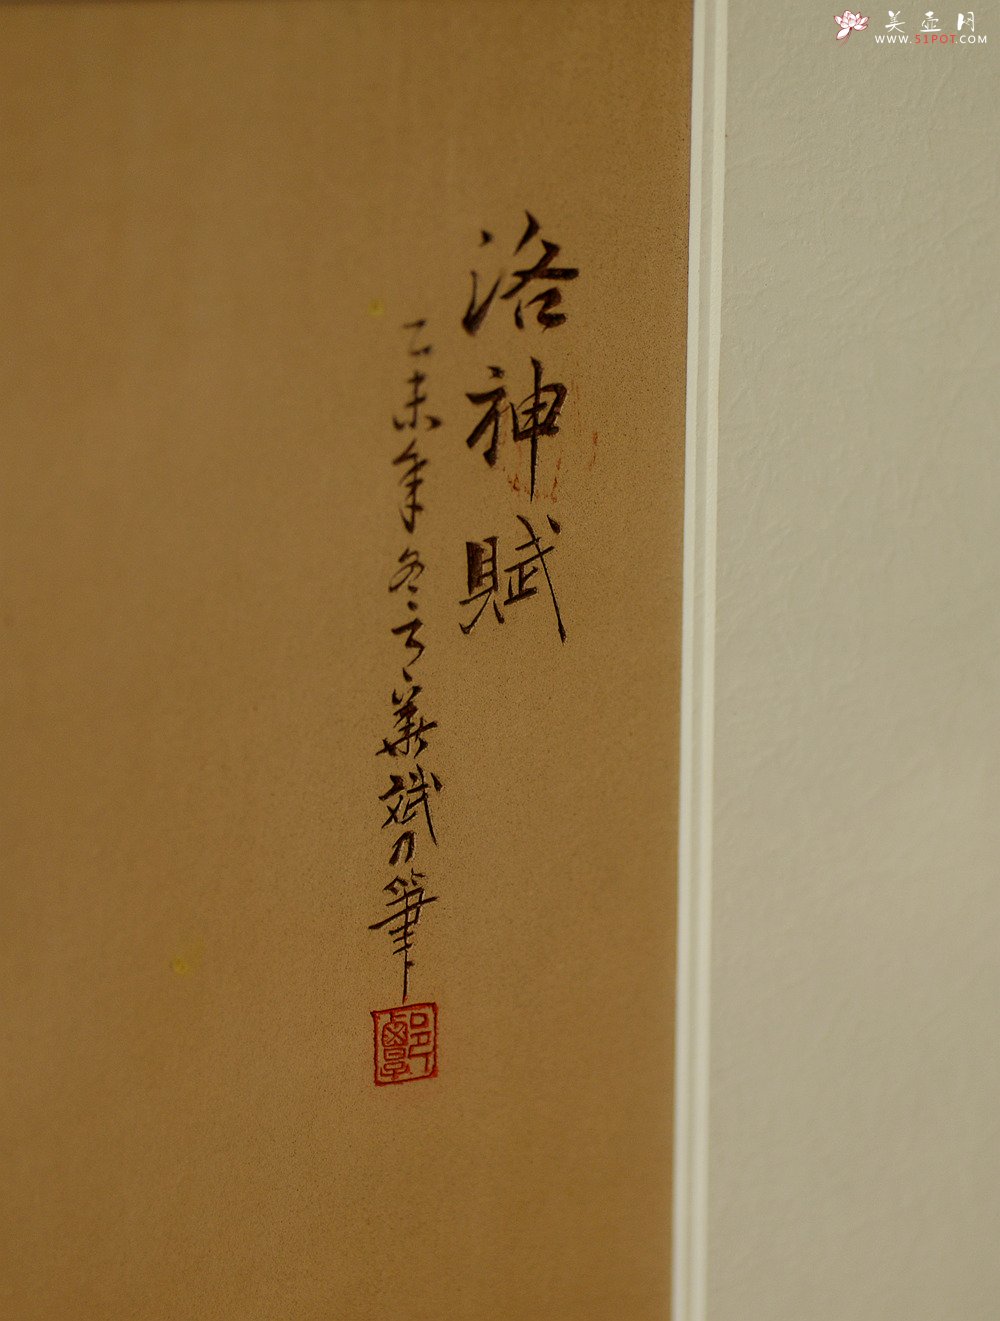 美壶网
WWW.51POT.COM
洛神賦
乙未年冬月華斌刀筆